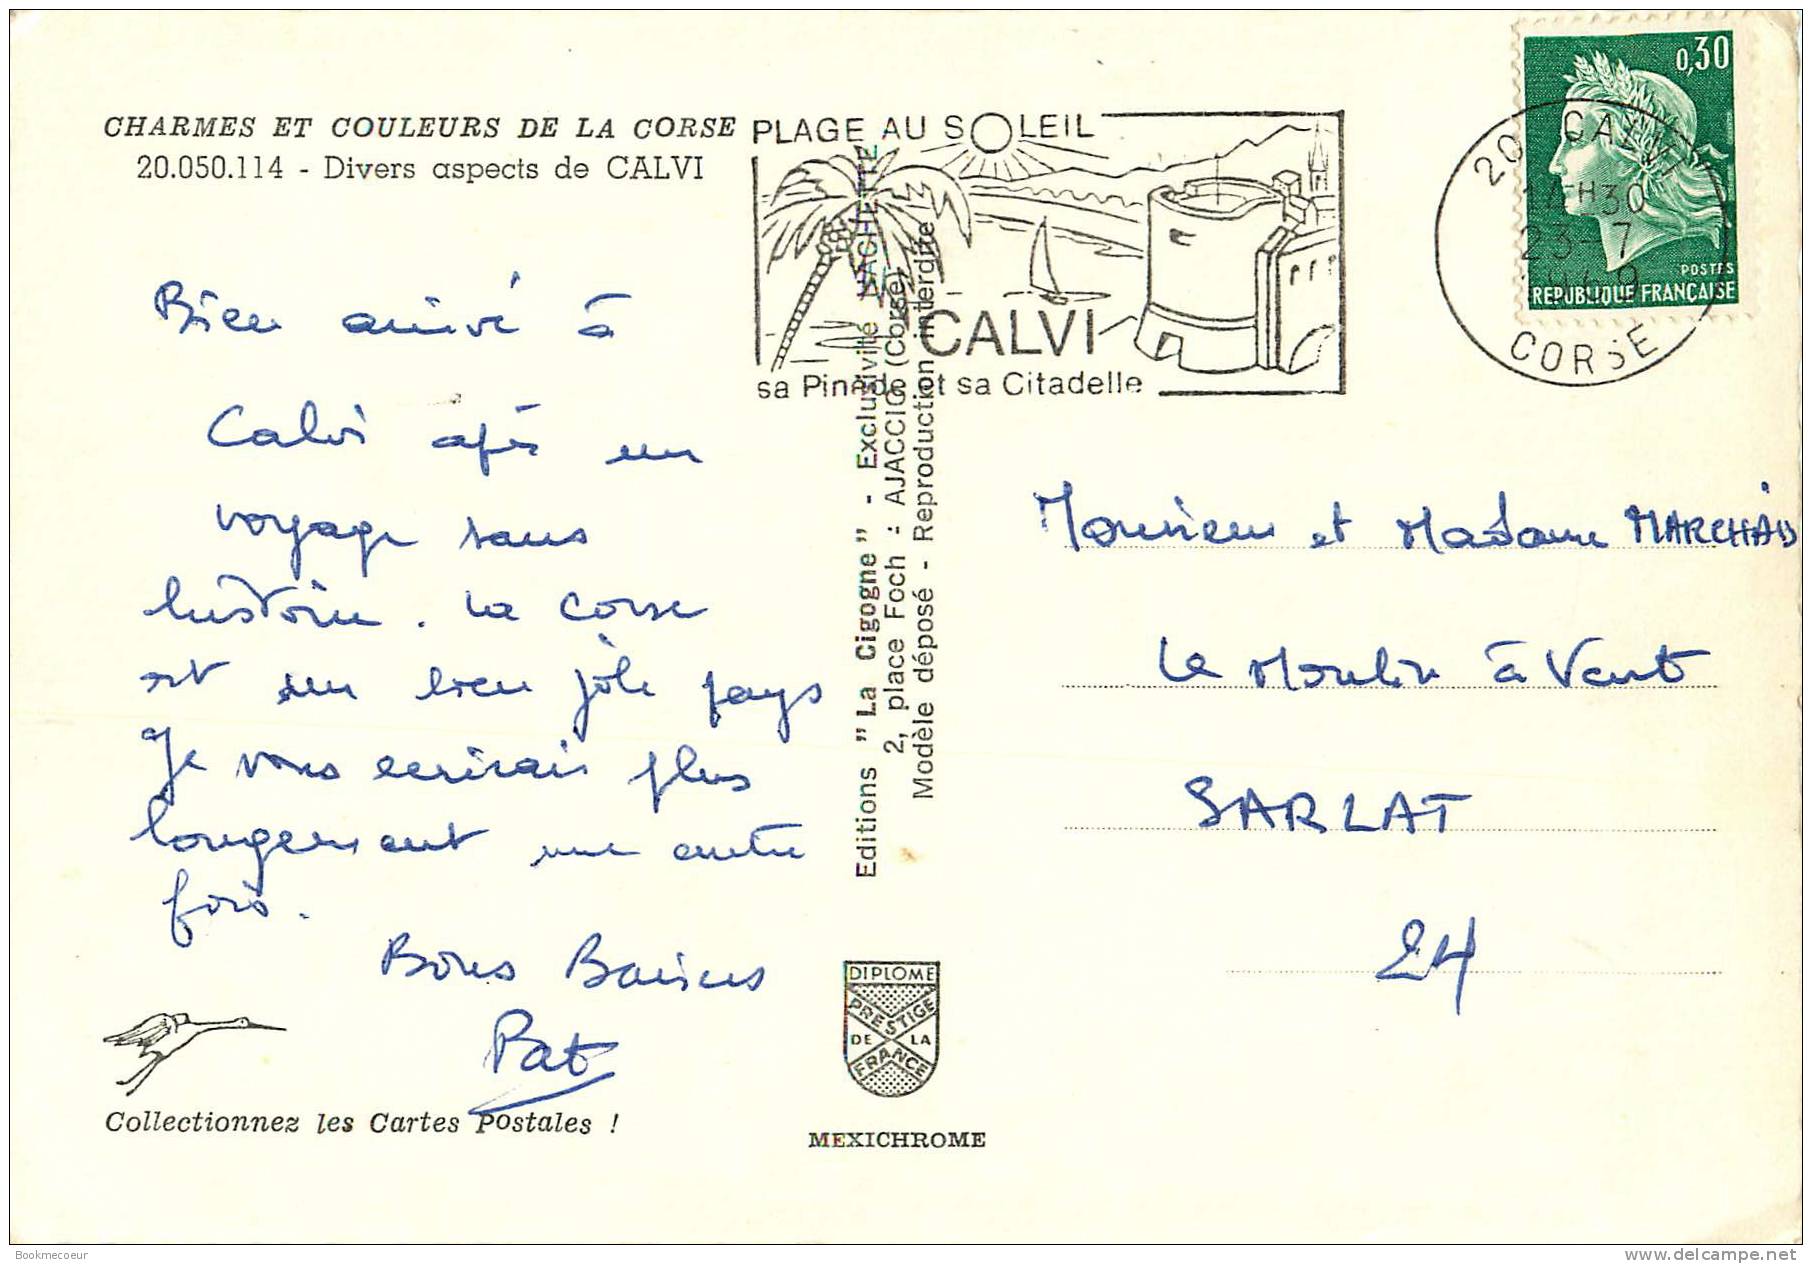 CHARMES ET COULEURS DE LA CORSE
20.050.114 - Divers aspects de CALVI
Bien arrivé à
Calvi après un
voyage sans
histoire. La Corse
est un bien joli pays
Je vous ecrirais plus
longuement une autre
fois.
Bons Baisers
Pat
Collectionnez les Cartes Postales !
PLAGE AU SOLEIL
CALVI
sa Pinède et sa Citadelle
Editions "La Cigogne" - Exclusivité HACHETTE
2, place Foch : AJACCIO (Corse)
Modèle déposé - Reproduction interdite
DIPLOME
PRESTIGE
DE LA
FRANCE
MEXICHROME
0,30
POSTES
REPUBLIQUE FRANÇAISE
20 CALVI
14H30
23-7
1969
CORSE
Monsieur et Madame
Le Moulin à Vent
SARLAT
24
Bookmecoeur
delcampe.net